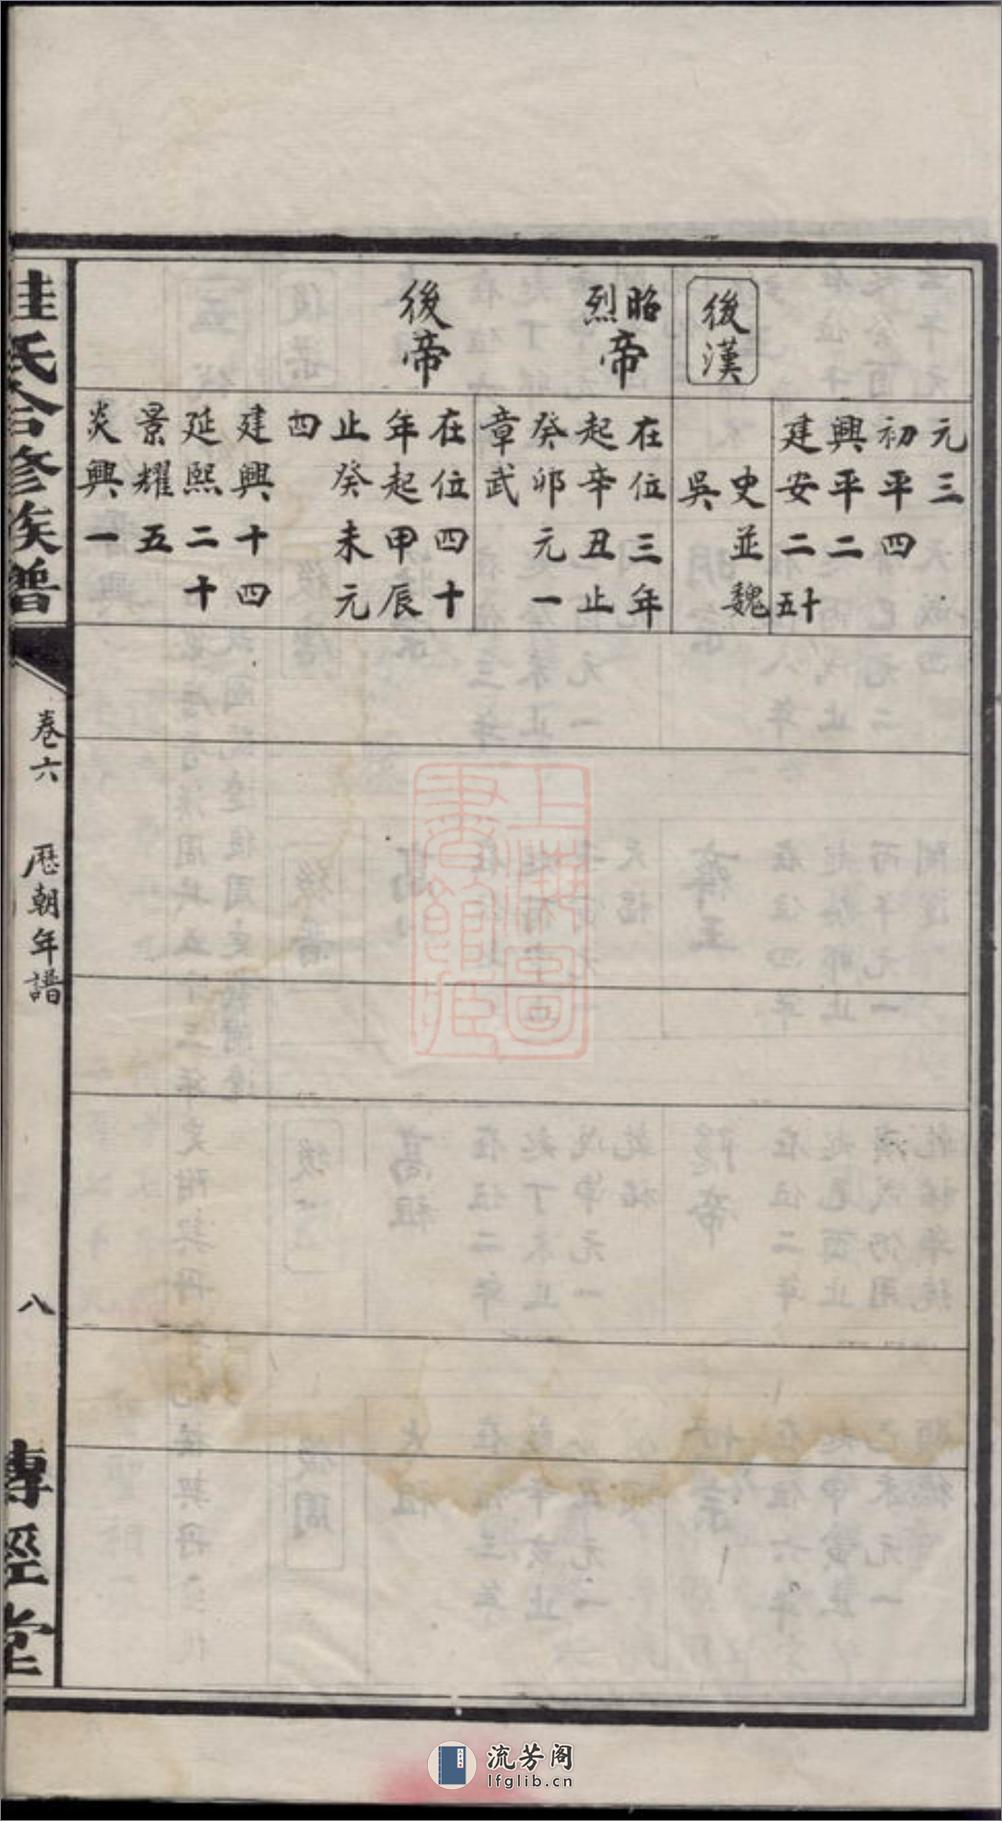 元三
初平四
興平二
建安二十五
後漢
史並魏
吳
昭烈帝
在位三年
起辛丑止
癸卯元一
章武
後帝
在位四十
年起甲辰
止癸未元
四
建興十四
延熙二十
景耀五
炎興一
桂氏合修族譜
卷六 歷朝年譜
八
傳經堂
上海圖書館藏
流芳阁
lfglib.cn